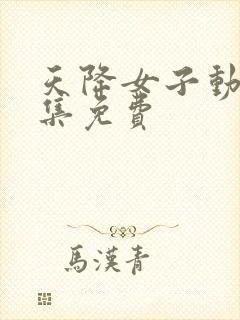 天降女子動
集免費
馬漢青